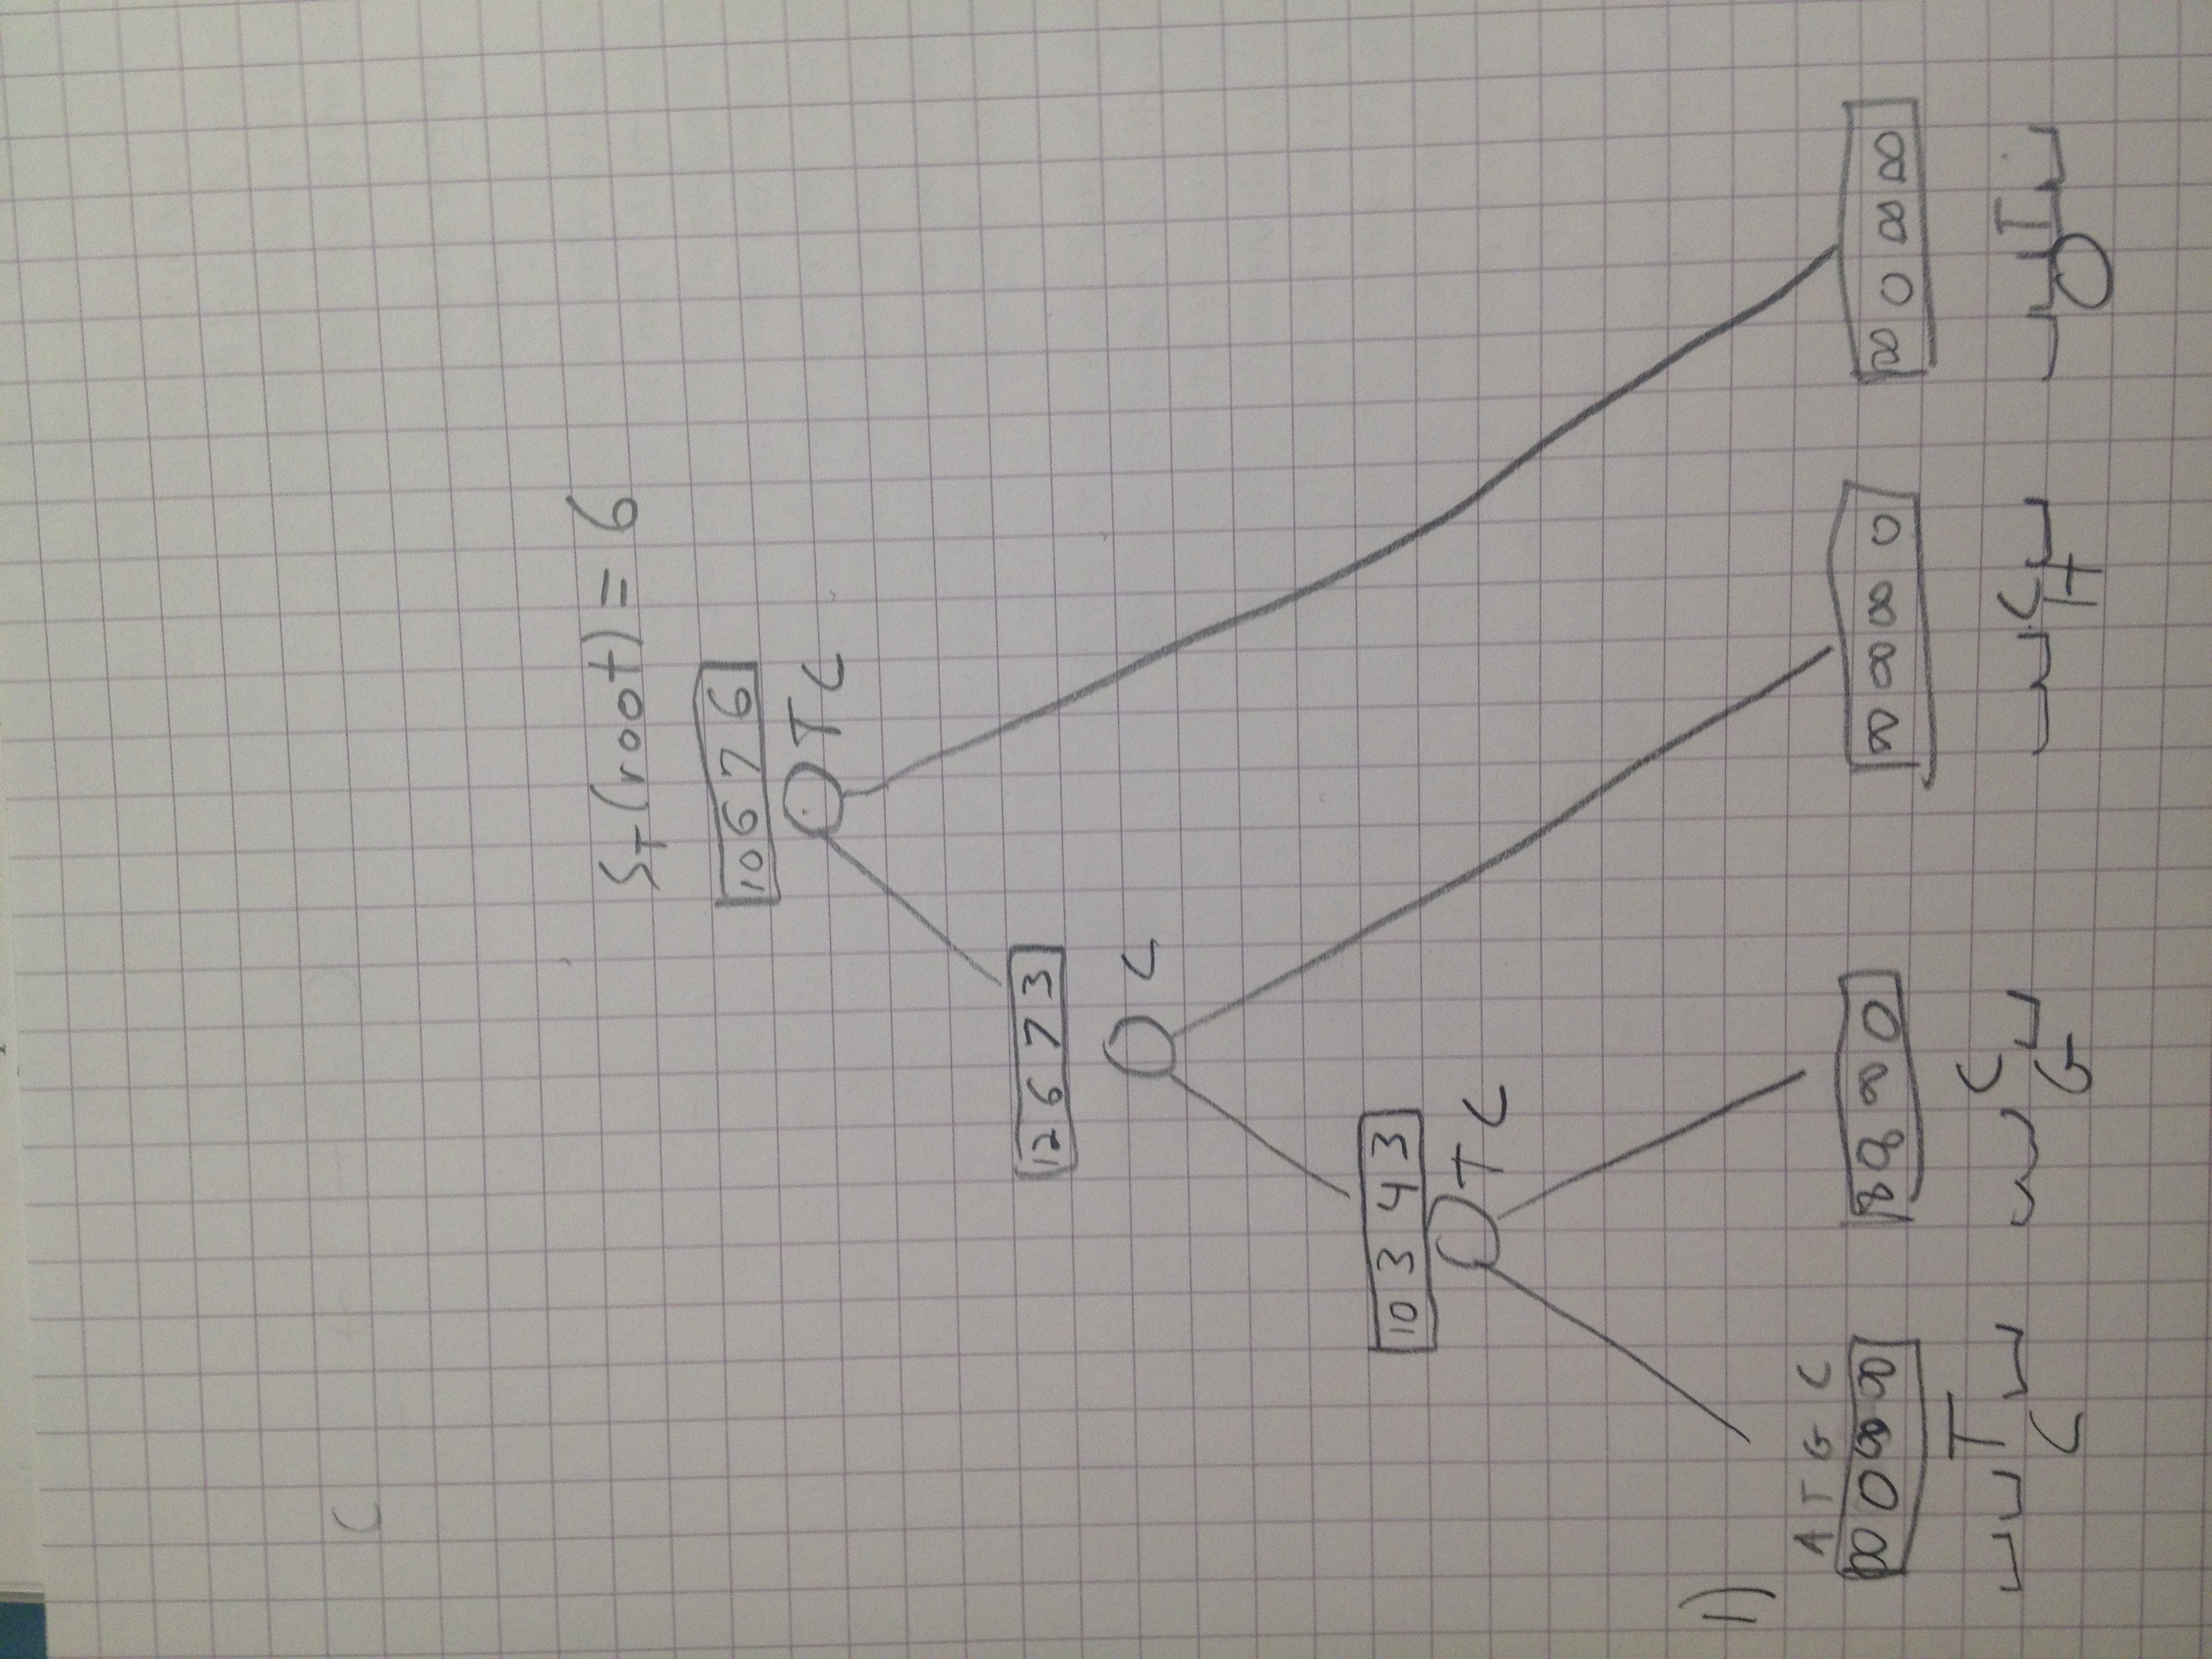 C
S_T(root) = 6
10 6 7 6
T C
12 6 7 3
C
10 3 4 3
T C
1)
A T G C
∞ 0 ∞ ∞ 8 8 ∞ 0 ∞ ∞ ∞ 0 ∞ 0 ∞ ∞
T C C T
C G H O